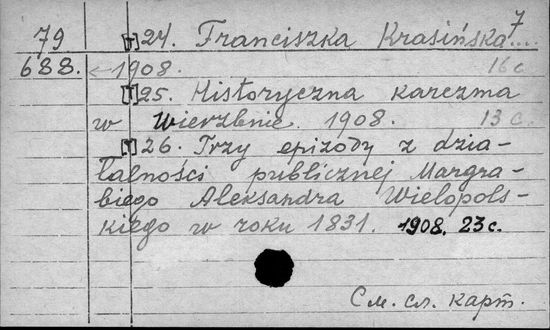 7
79 [-]24. Franciszka Krasińska....
688. ←1908. 16 c
[-]25. Historyczna karczma
w Wierzbnie. 1908. 13 c.
[-]26. Trzy epizody z dzia-
łalności publicznej Margra-
biego Aleksandra Wielopols-
kiego w roku 1831. 1908. 23 c.
См. сл. карт.